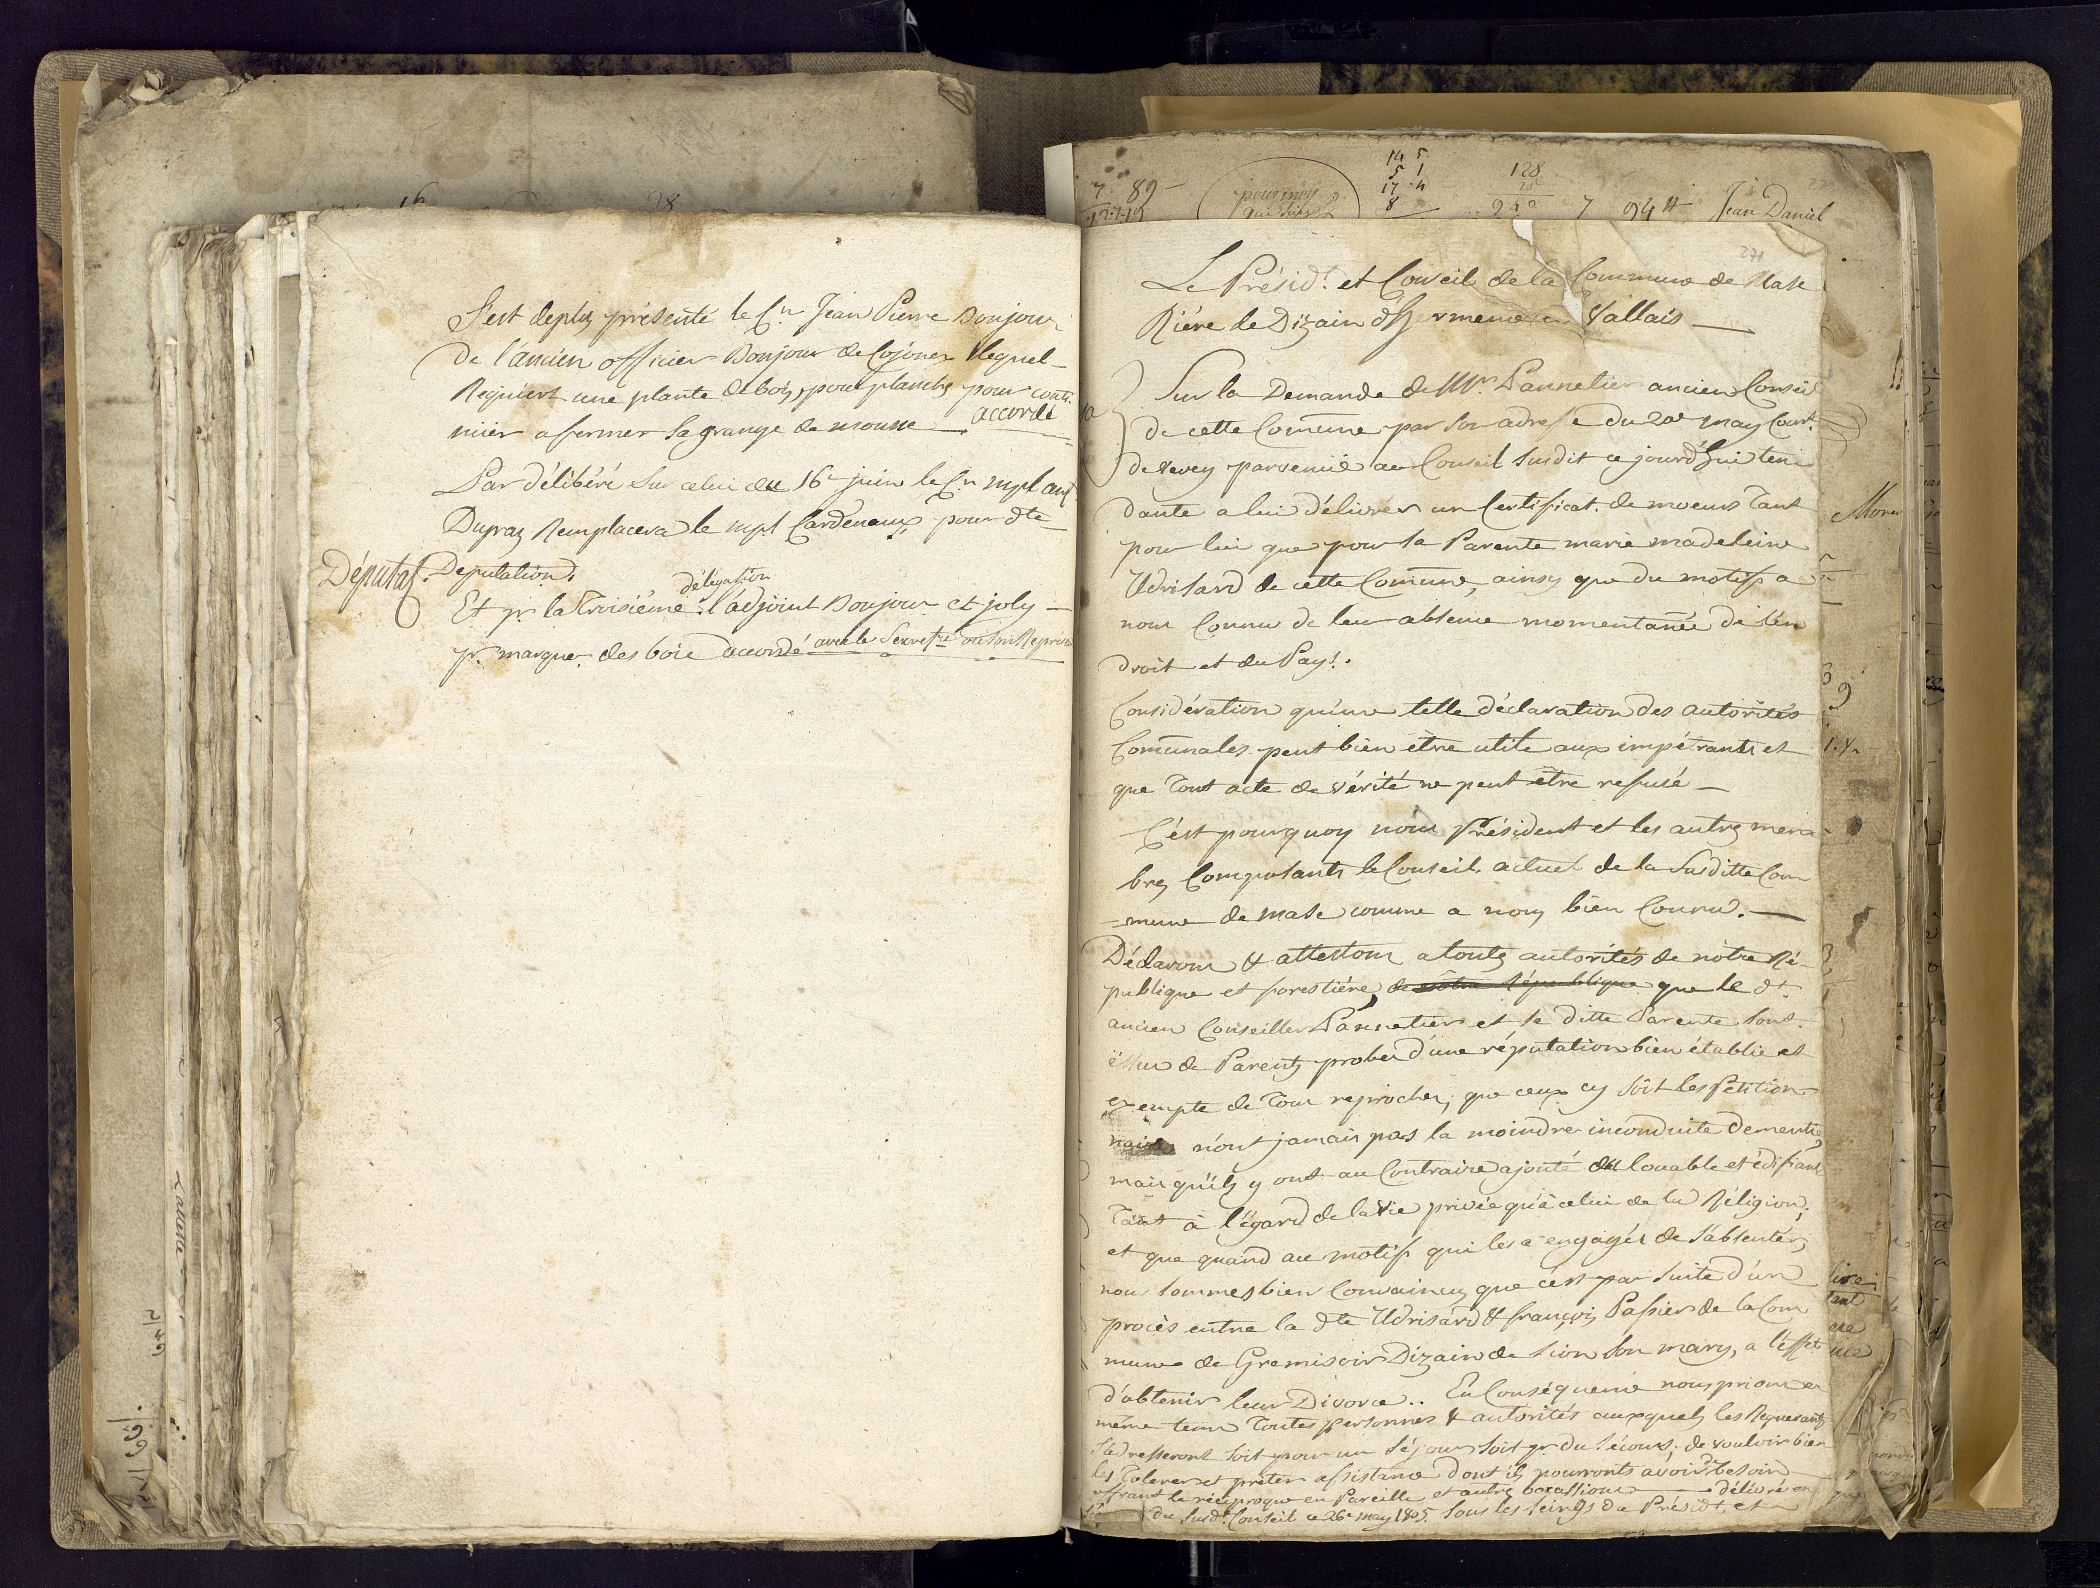 S'est deplus présenté le C.n Jean Pierre Bonjour
de l'ancien officier Bonjour de lequel
Requiert une plante de bois, pour planches pour
nuer a fermer sa grange de mousse accordé
Par délibéré sur celui du 16e juin le C.n
Dupraz Remplacera le Cardeneaux pour dte
Députat. Deputation.
délégation
Et pr. la Troisiéme l'adjoint Bonjour et joly
pr. marquer des bois accordé avec le
7. 89
14 5
5 1
17 4
8
128
28
940 7 Jean Daniel
pour moy
271
Le Présidt. et Conseil de la Commune de Mase
Riére le Dizain d'Hermence en Vallais
Sur la Demande de Mr. Pannetier ancien Conseil
de cette Comune par son adresse du 20e may Cour.t
de vevey parvenüe au Conseil susdit ce jourd'hui ten
dante a lui délivrer un Certificat de moeurs Tant
pour lui que pour sa Parente marie madeleine
Udrisard de cette Comune, ainsy que du motifs a
nous Connu de leur absence momentanée de l'en
droit et du Pays.
Considération qu'une telle déclaration des autorités
Comunales peut bien être utile aux impétrants et
que Tout acte de vérité ne peut être refusé
C'est pourquoy nous Président et les autres mem
bres Composants le Conseil actuel de la Susditte Com
mune de mase comme a nous bien Connu.
Déclarons & attestons a toutes autorités de nôtre Ré
publique et forestiére, de nôtre République que le dt.
ancien Conseiller Pannetier et sa ditte Parente sont
issus de Parents probes d'une réputation bien établie et
exempte de Tous reproches; que ceux cy soit les Petition
naires n'ont jamais pas la moindre inconduite dementie
mais qu'ils y ont au Contraire ajouté du louable et édifiant
Tant à l'égard de la vie privée qu'à celui de la Réligion;
et que quand au motifs qui les a engagés de s'absenter,
nous sommes bien Convaincus que c'est par suite d'un
procès entre la dte Udrisard & françois Passier de la Com
mune de Gremisoir Dizain de Sion son mary, a l'effet
d'obtenir leur Divorce.. En Conséquence nous prions en
même tems Toutes personnes & autorités auxquels les Requerants
s'adresseront soit pour un séjour soit pr. du sécours; de vouloir bien
les Tolerer et prêter assistance dont ils pourronts avoir besoin
offrant le réciproque en Pareille et autres occassions délivré en
du susdt. Conseil ce 26e may 1805. Sous les seings du Présidt. et